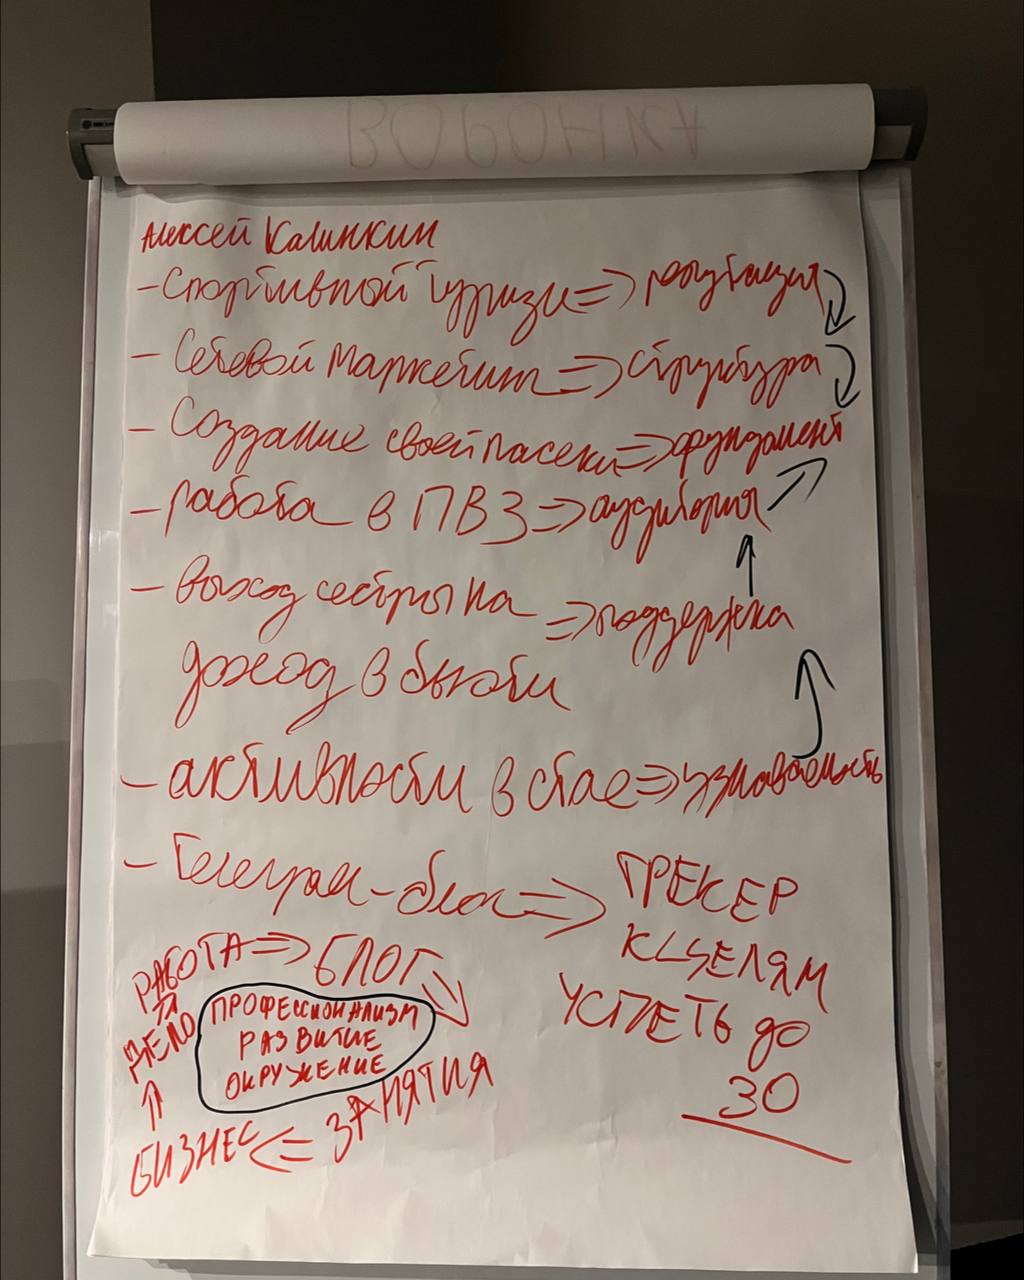 ВОРОНКА
Алексей Калинкин
- Спортивный туризм => репутация
- Сетевой маркетинг => структура
- Создание своей пасеки => фундамент
- работа в ПВЗ => аудитория
- выход сестры на => поддержка
доход в бьюти
- активности в стае => узнаваемость
- Телеграм-блог => ТРЕКЕР
К ЦЕЛЯМ
УСПЕТЬ до
30
РАБОТА => БЛОГ
ДЕЛО
ПРОФЕССИОНАЛИЗМ
РАЗВИТИЕ
ОКРУЖЕНИЕ
БИЗНЕС <= ЗАНЯТИЯ